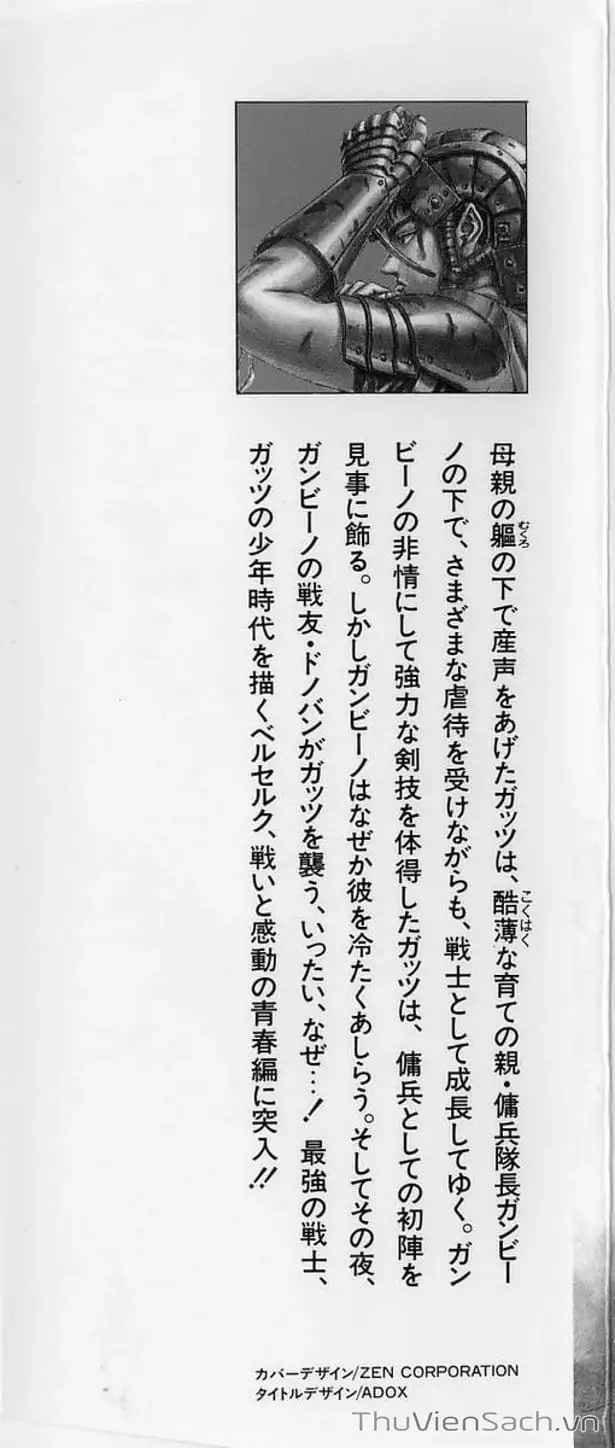 母親の軀の下で産声をあげたガッツは、酷薄な育ての親・傭兵隊長ガンビー
むくろ
こくはく
ノの下で、さまざまな虐待を受けながらも、戦士として成長してゆく。ガン
ビーノの非情にして強力な剣技を体得したガッツは、傭兵としての初陣を
見事に飾る。しかしガンビーノはなぜか彼を冷たくあしらう。そしてその夜、
ガンビーノの戦友・ドノバンがガッツを襲う、いったい、なぜ…！ 最強の戦士、
ガッツの少年時代を描くベルセルク、戦いと感動の青春編に突入!!
カバーデザイン/ZEN CORPORATION
タイトルデザイン/ADOX
ThuVienSach.vn